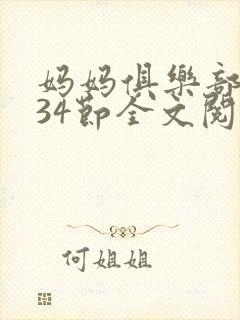 妈妈俱樂部
34節全文閱
何姐姐